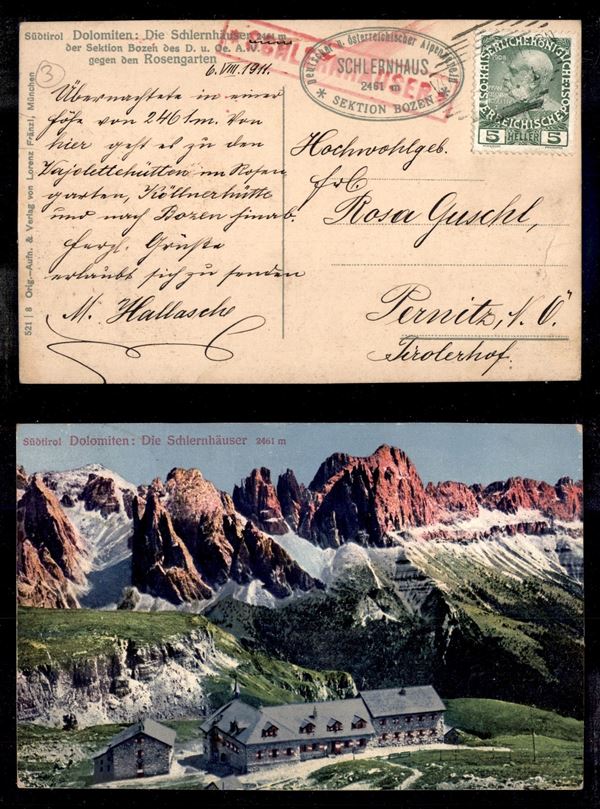 Südtirol Dolomiten: Die Schlernhäuser 2461 m
der Sektion Bozen des D. u. Oe. A.V.
gegen den Rosengarten
3
6. VIII. 1911.
Übernachtete in einer
Höhe von 2461m. Von
hier geht es zu den
Vajolettehütten im Rosen
garten, Köllnerhütte
und nach Bozen hinab.
Herzl. Grüße
erlaubt sich zu senden
M. Hallasche
521|8 Orig.-Aufn. & Verlag von Lorenz Fränzl, München
SCHLERNHÄUSER
Deutscher u. österreichischer Alpenverein
SCHLERNHAUS
2461 m
* SEKTION BOZEN *
5 HELLER 5
Hochwohlgeb.
Frl.
Rosa Guschl,
Pernitz, N. Ö.
Tirolerhof.
Südtirol Dolomiten: Die Schlernhäuser 2461 m